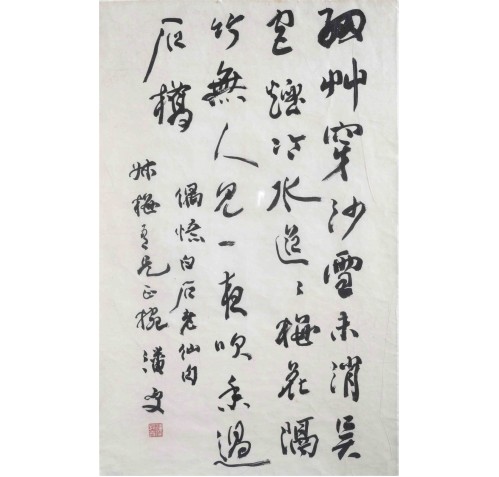 細艸穿沙雪未消吳
宮煙冷水迢〻梅花隔
竹無人見一夜吹香過
石橋
偶憶白石老仙句
梅兄正腕潘受